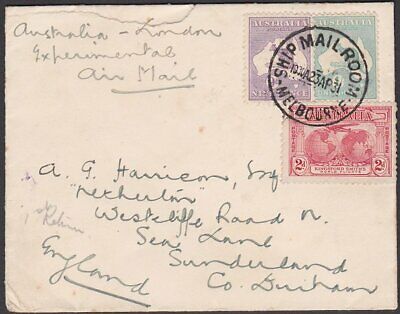 Australia - London
Experimental
Air Mail
AUSTRALIA
AUSTRALIA
SHIP MAIL ROOM
23AP31
MELBOURNE
AUSTRALIA
KINGSFORD SMITH'S
2D 2D
A. G. Harrison, Esq
"Netherton"
Westcliffe Road N.
Sea Lane
Sunderland
Co. Durham
England
Return